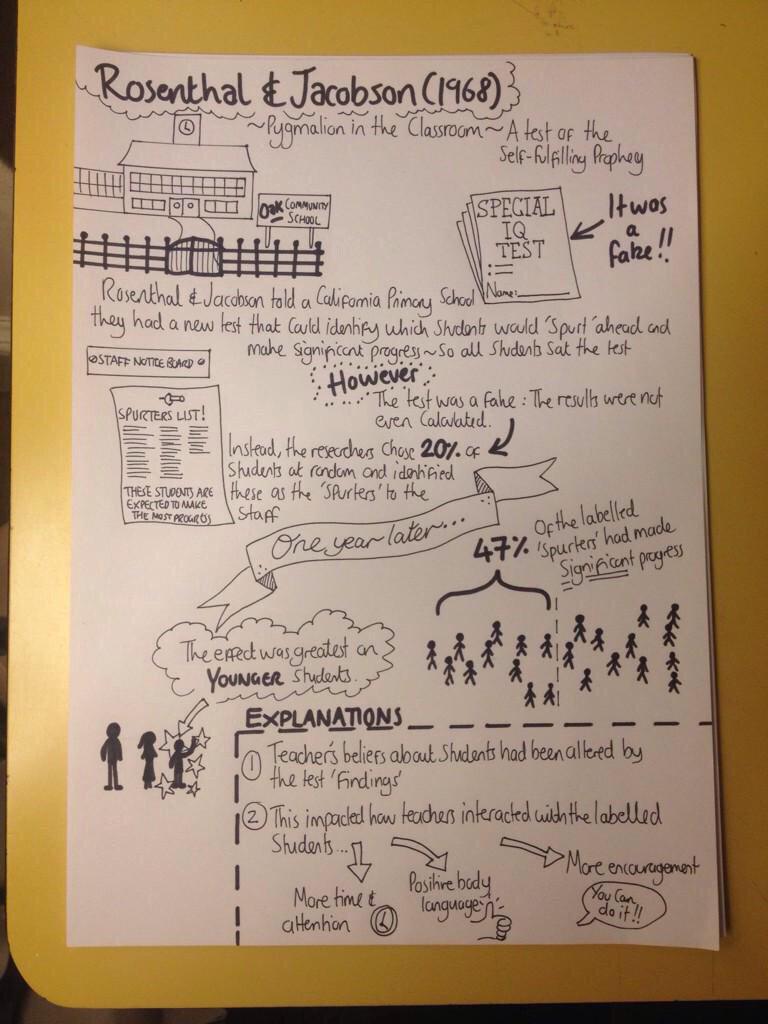 Rosenthal & Jacobson (1968)
~Pygmalion in the Classroom~ A test of the
Self-fulfilling Prophey
Oak COMMUNITY
SCHOOL
SPECIAL
IQ
TEST
Name:
It was
a
fake!!
Rosenthal & Jacobson told a California Primary School
they had a new test that could identify which students would 'Spurt' ahead and
make significant progress ~ So all students sat the test
STAFF NOTICE BOARD
However
The test was a fake: The results were not
even calculated.
SPURTERS LIST!
THESE STUDENTS ARE
EXPECTED TO MAKE
THE MOST PROGRESS
Instead, the researchers chose 20% of
students at random and identified
these as the 'Spurters' to the
staff
One year later...
47%
Of the labelled
'Spurters' had made
Significant progress
The effect was greatest on
YOUNGER students.
EXPLANATIONS
1 Teacher's beliefs about students had been altered by
the test 'findings'
2 This impacted how teachers interacted with the labelled
students...
More time &
attention
Positive body
language
More encouragement
You can
do it!!